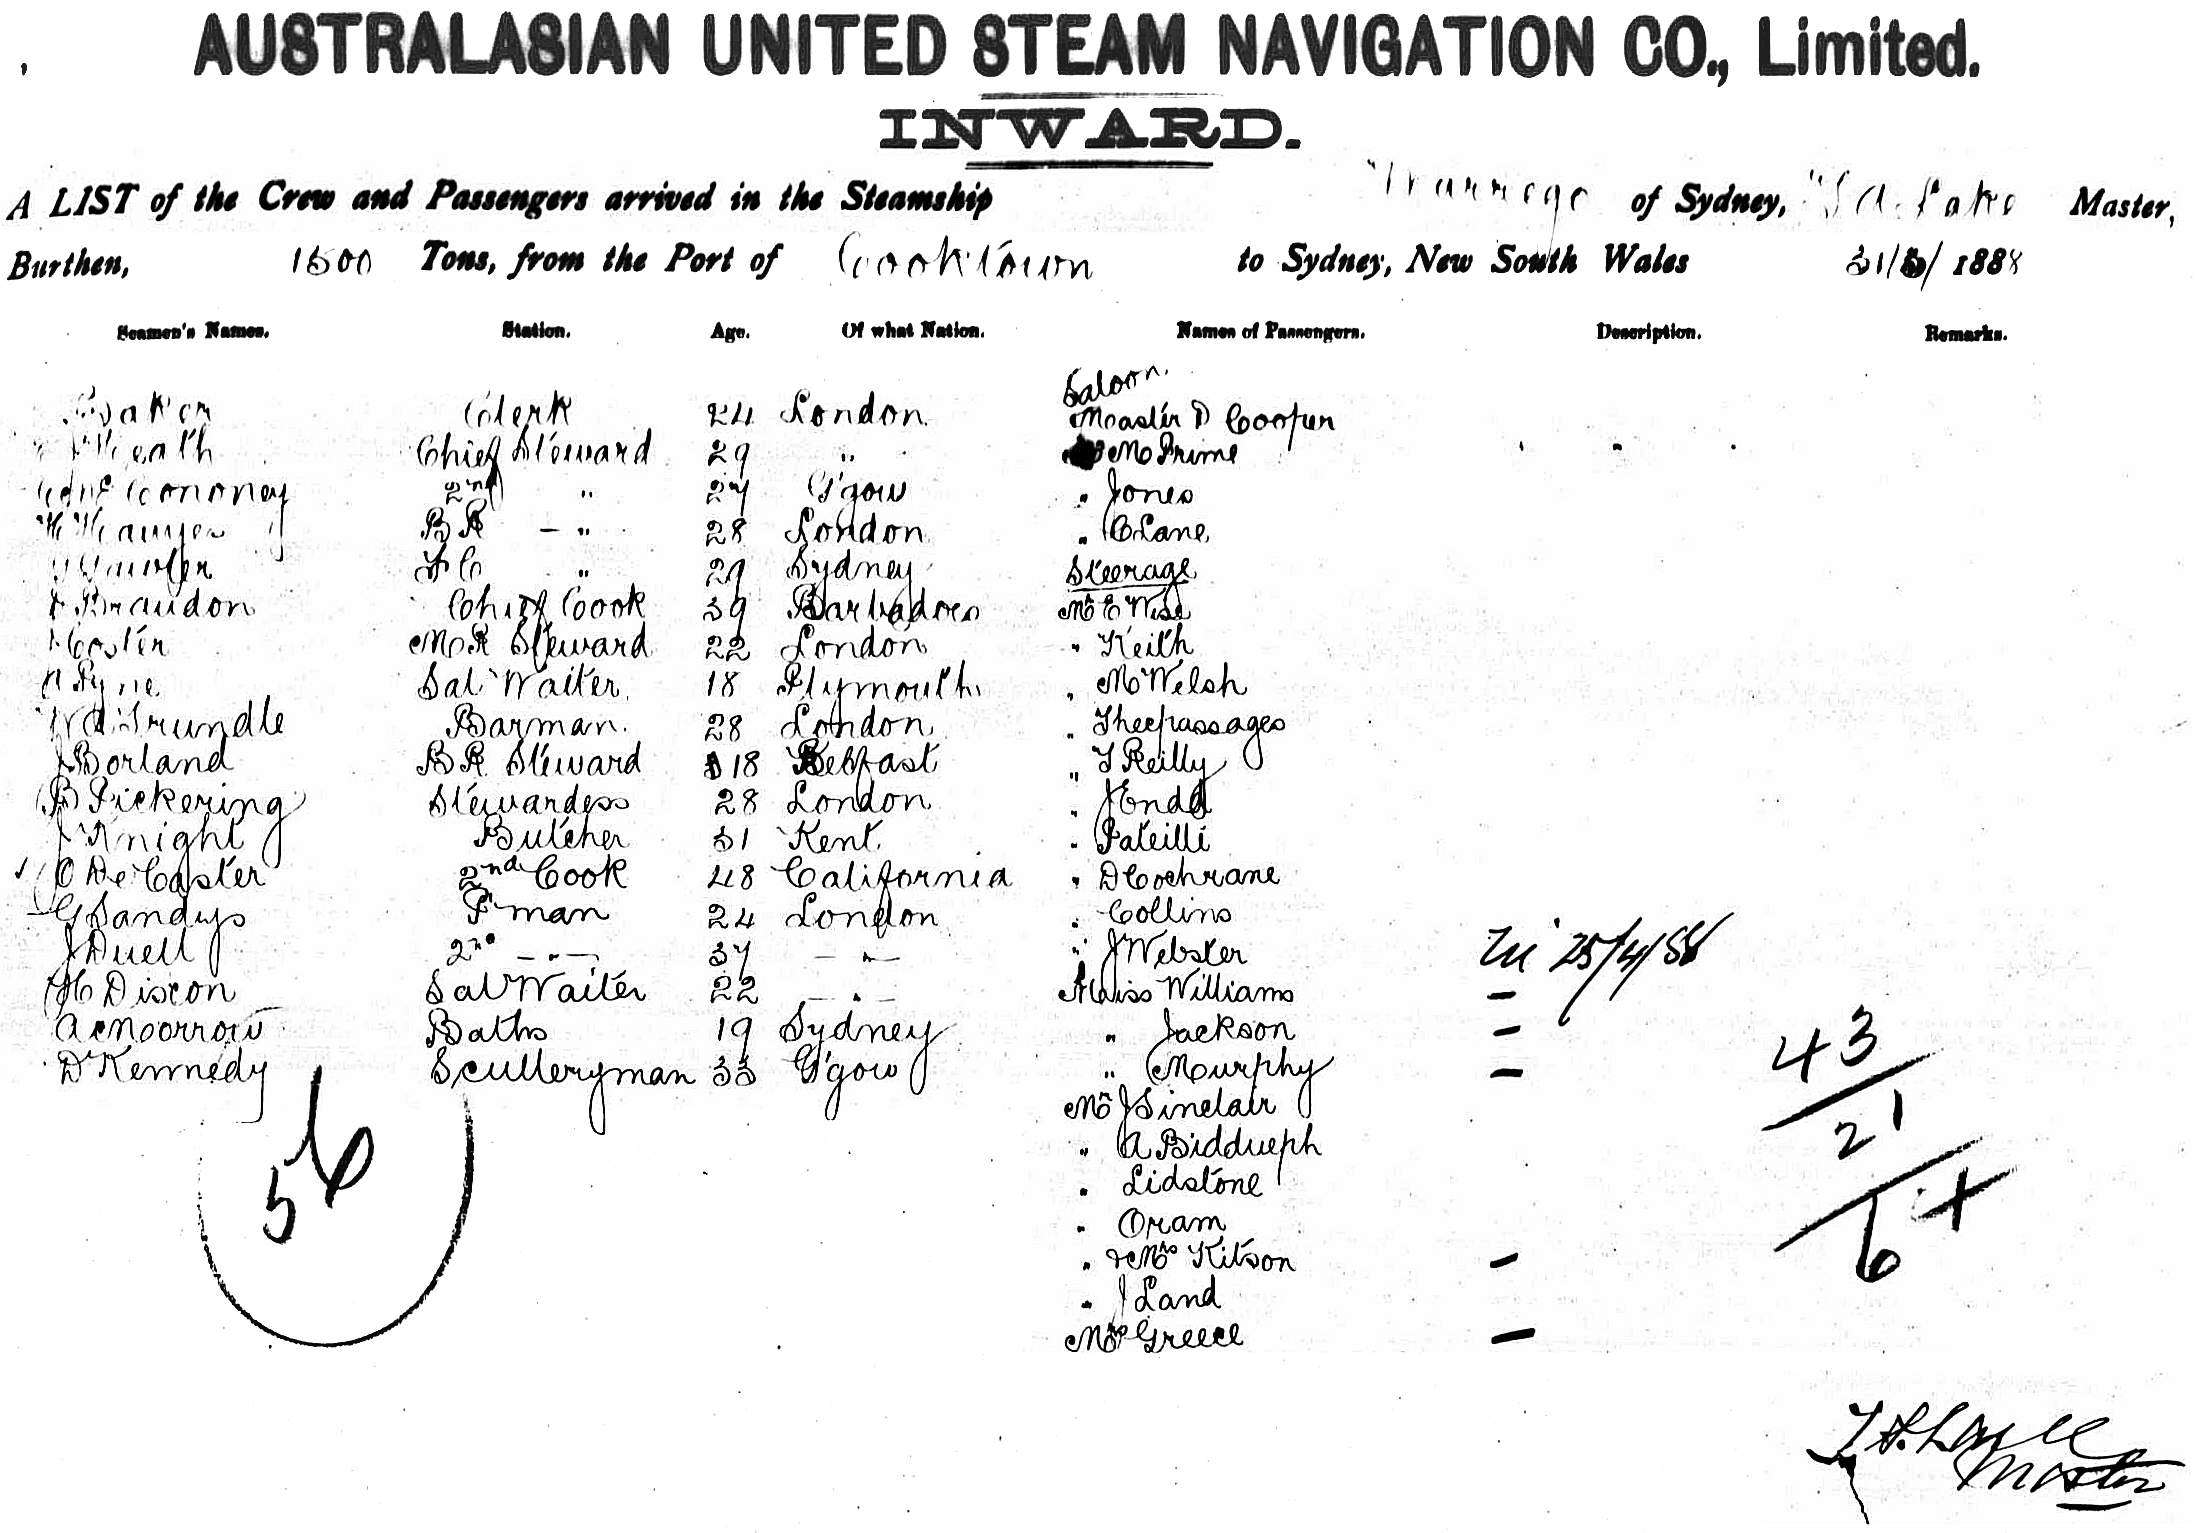 AUSTRALASIAN UNITED STEAM NAVIGATION CO., Limited.
INWARD.
A LIST of the Crew and Passengers arrived in the Steamship Warrego of Sydney, Master,
Burthen, 1500 Tons, from the Port of Cooktown to Sydney, New South Wales 31/5/1888
Seamen's Names. Station. Age. Of what Nation. Names of Passengers. Description. Remarks.
Saloon.
Baker Clerk 24 London Master D Cooper
Heath Chief Steward 29 " Mr Prime
Cononey 2nd " 27 G'gow " Jones
BR - " 28 London " C Lane
FC " 29 Sydney Steerage
Brandon Chief Cook 39 Barbadoes Mr E Wise
Coster MR Steward 22 London " Keith
A Pyne Sal Waiter 18 Plymouth " McWelsh
Trundle Barman. 28 London " Theepassages
J Borland BR Steward 18 Belfast " T Reilly
B Pickering Stewardess 28 London " J Endd
J Knight Butcher 31 Kent. " Pateilli
O De Caster 2nd Cook 48 California " D Cochrane
G Sandys P'man 24 London " Collins
J Duell 2nd - " - 37 - " - " J Webster 25/4/88
H Dixon Sal Waiter 22 - " - Miss Williams -
A McMorrow Baths 19 Sydney " Jackson -
D Kennedy Sculleryman 33 G'gow " Murphy -
Mr J Sinclair
" A Biddueph
" Lidstone
" Oram
" & Mrs Kitson -
" J Land
Mrs Greece -
56
43
21
64
Master